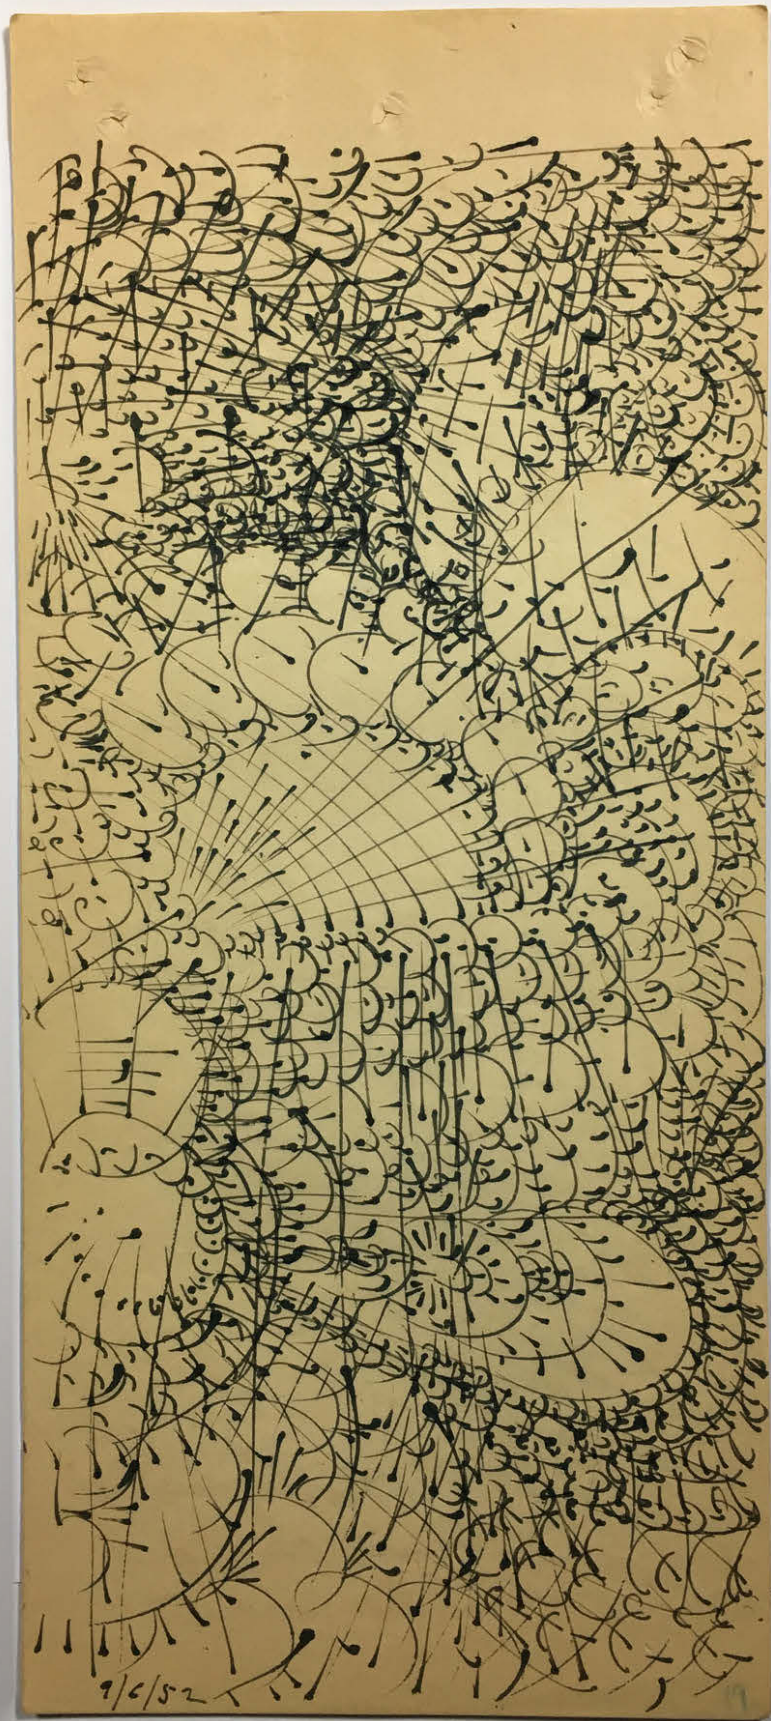 9/6/52
19